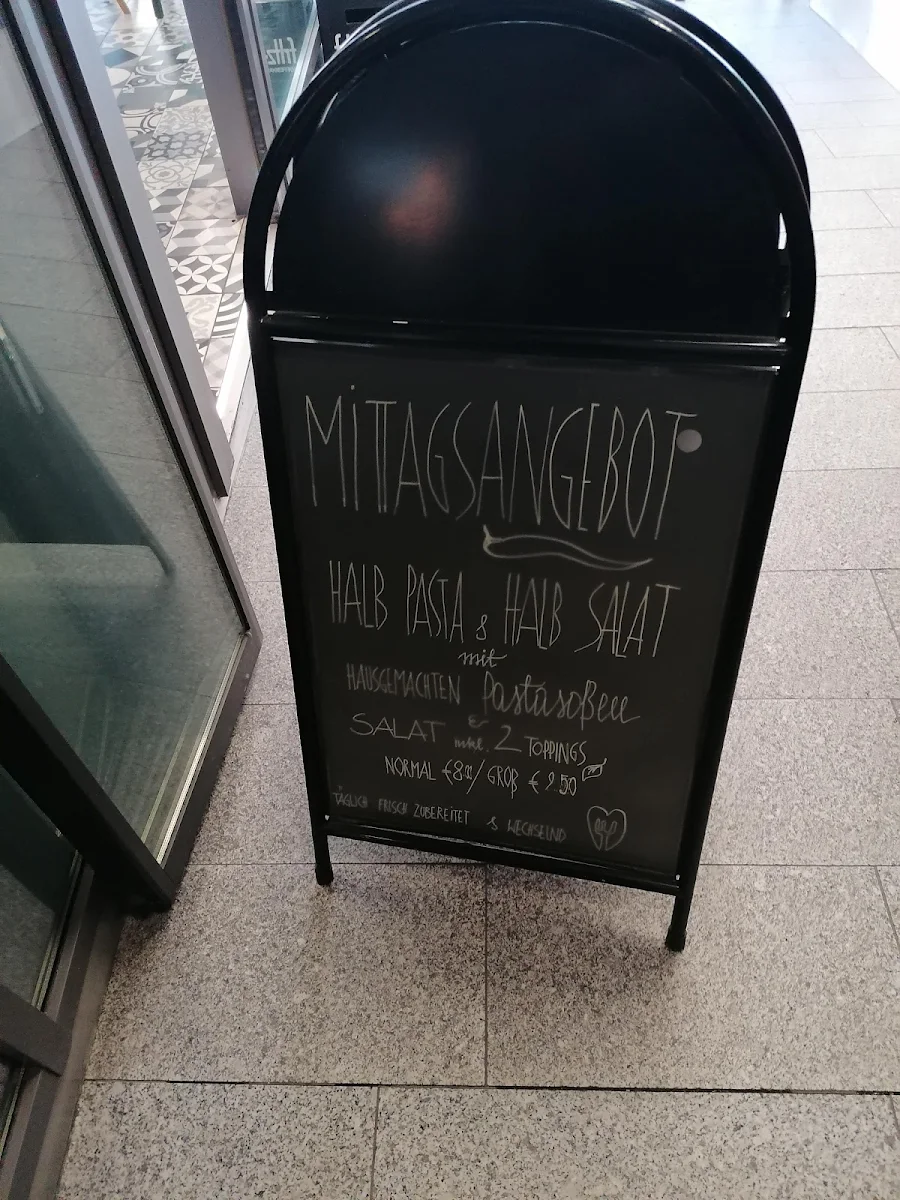 fritz
MITTAGSANGEBOT
HALB PASTA & HALB SALAT
mit
HAUSGEMACHTEN Pastasoßen
&
SALAT inkl. 2 TOPPINGS
NORMAL €8.00/GROß €9.50
TÄGLICH FRISCH ZUBEREITET & WECHSELND